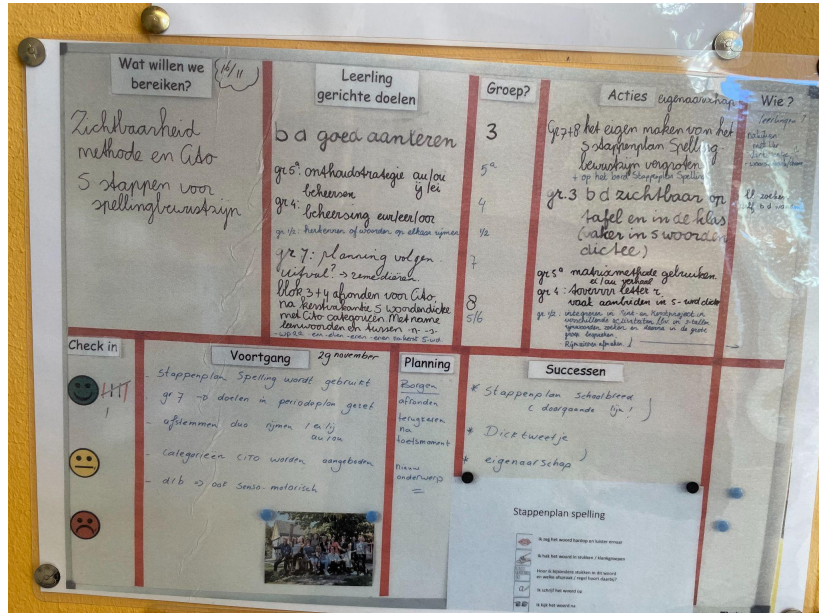 Wat willen we
bereiken?
16/11
Zichtbaarheid
methode en Cito
5 stappen voor
spellingbewustzijn
Leerling
gerichte doelen
b d goed aanleren
gr 5a: onthoudstrategie au/ou
beheersen ij/ei
gr 4: beheersing eur/eer/oor
gr 1/2: herkennen of woorden op elkaar rijmen
gr 7: planning volgen.
uitval? → remediëren.
blok 3+4 afronden voor Cito.
na kerstvakantie 5 woordendictee
met Cito categorieën. Met name
leenwoorden en tussen -n -s-
Groep?
3
5a
4
1/2
7
8
5/6
Acties eigenaarschap
Gr 7+8 het eigen maken van het
5 stappenplan Spelling
bewustzijn vergroten
+ op het bord Stappenplan Spelling
gr. 3 b d zichtbaar op
tafel en in de klas
(vaker in 5 woorden
dictee)
gr 5a matrixmethode gebruiken.
ei/au verhaal
gr 4: letter r.
vaak aanbieden in 5-wrd dictee
gr 1/2: integreren in
zoeken en daarna in de grote
groep bespreken
Wie?
leerlingen
ll zoeken
Check in
Voortgang 29 november
- Stappenplan Spelling wordt gebruikt
gr 7 → doelen in periodeplan gezet
- afstemmen duo rijmen / ei/ij
au/ou
- Categorieën CITO worden aangeboden
- d/b => ook senso-motorisch
Planning
Borgen
afronden
terugkijken
na
toetsmoment
nieuw
onderwerp
Successen
* Stappenplan schoolbreed
( doorgaande lijn! )
* Dicktweetje
* eigenaarschap
Stappenplan spelling
Ik zeg het woord hardop en luister ernaar
Ik hak het woord in stukken / klankgroepen
Hoor ik bijzondere stukken in dit woord
en welke afspraak / regel hoort daarbij?
Ik schrijf het woord op
Ik kijk het woord na